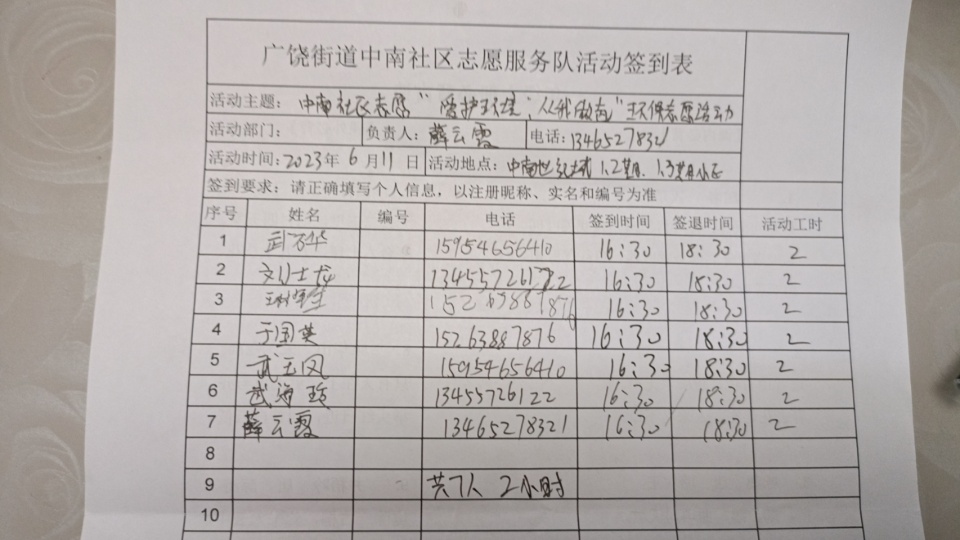 广饶街道中南社区志愿服务队活动签到表
活动主题：中南社区志愿"爱护环境，从我做起"环保志愿活动
活动部门： 负责人：薛云霞 电话：13465278321
活动时间：2023年6月11日 活动地点：中南世纪城1.2期、1.3期小区
签到要求：请正确填写个人信息，以注册昵称、实名和编号为准
序号 姓名 编号 电话 签到时间 签退时间 活动工时
1 武万华 15954656410 16:30 18:30 2
2 刘士龙 13455726122 16:30 18:30 2
3 15263887876 16:30 18:30 2
4 于国英 15263887876 16:30 18:30 2
5 武玉凤 15954656410 16:30 18:30 2
6 武海 13455726122 16:30 18:30 2
7 薛云霞 13465278321 16:30 18:30 2
8
9 共7人 2小时
10